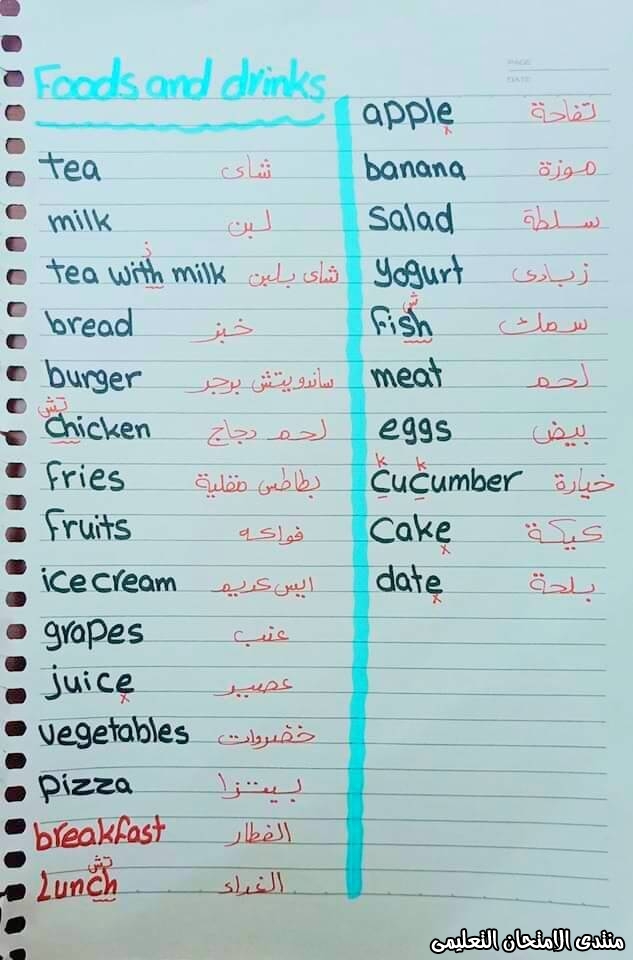 PAGE
DATE
Foods and drinks
tea شاى
milk لبن
ذ
tea with milk شاى بلبن
bread خبز
burger ساندويتش برجر
تش
chicken لحم دجاج
fries بطاطس مقلية
fruits فواكه
ice cream ايس كريم
grapes عنب
juice عصير
x
vegetables خضروات
pizza بيتزا
breakfast الفطار
تش
Lunch الغداء
apple تفاحة
x
banana موزة
salad سلطة
yogurt زبادى
ش
fish سمك
meat لحم
eggs بيض
k k
cucumber خيارة
cake كيكة
x
date بلحة
x
منتدى الامتحان التعليمى